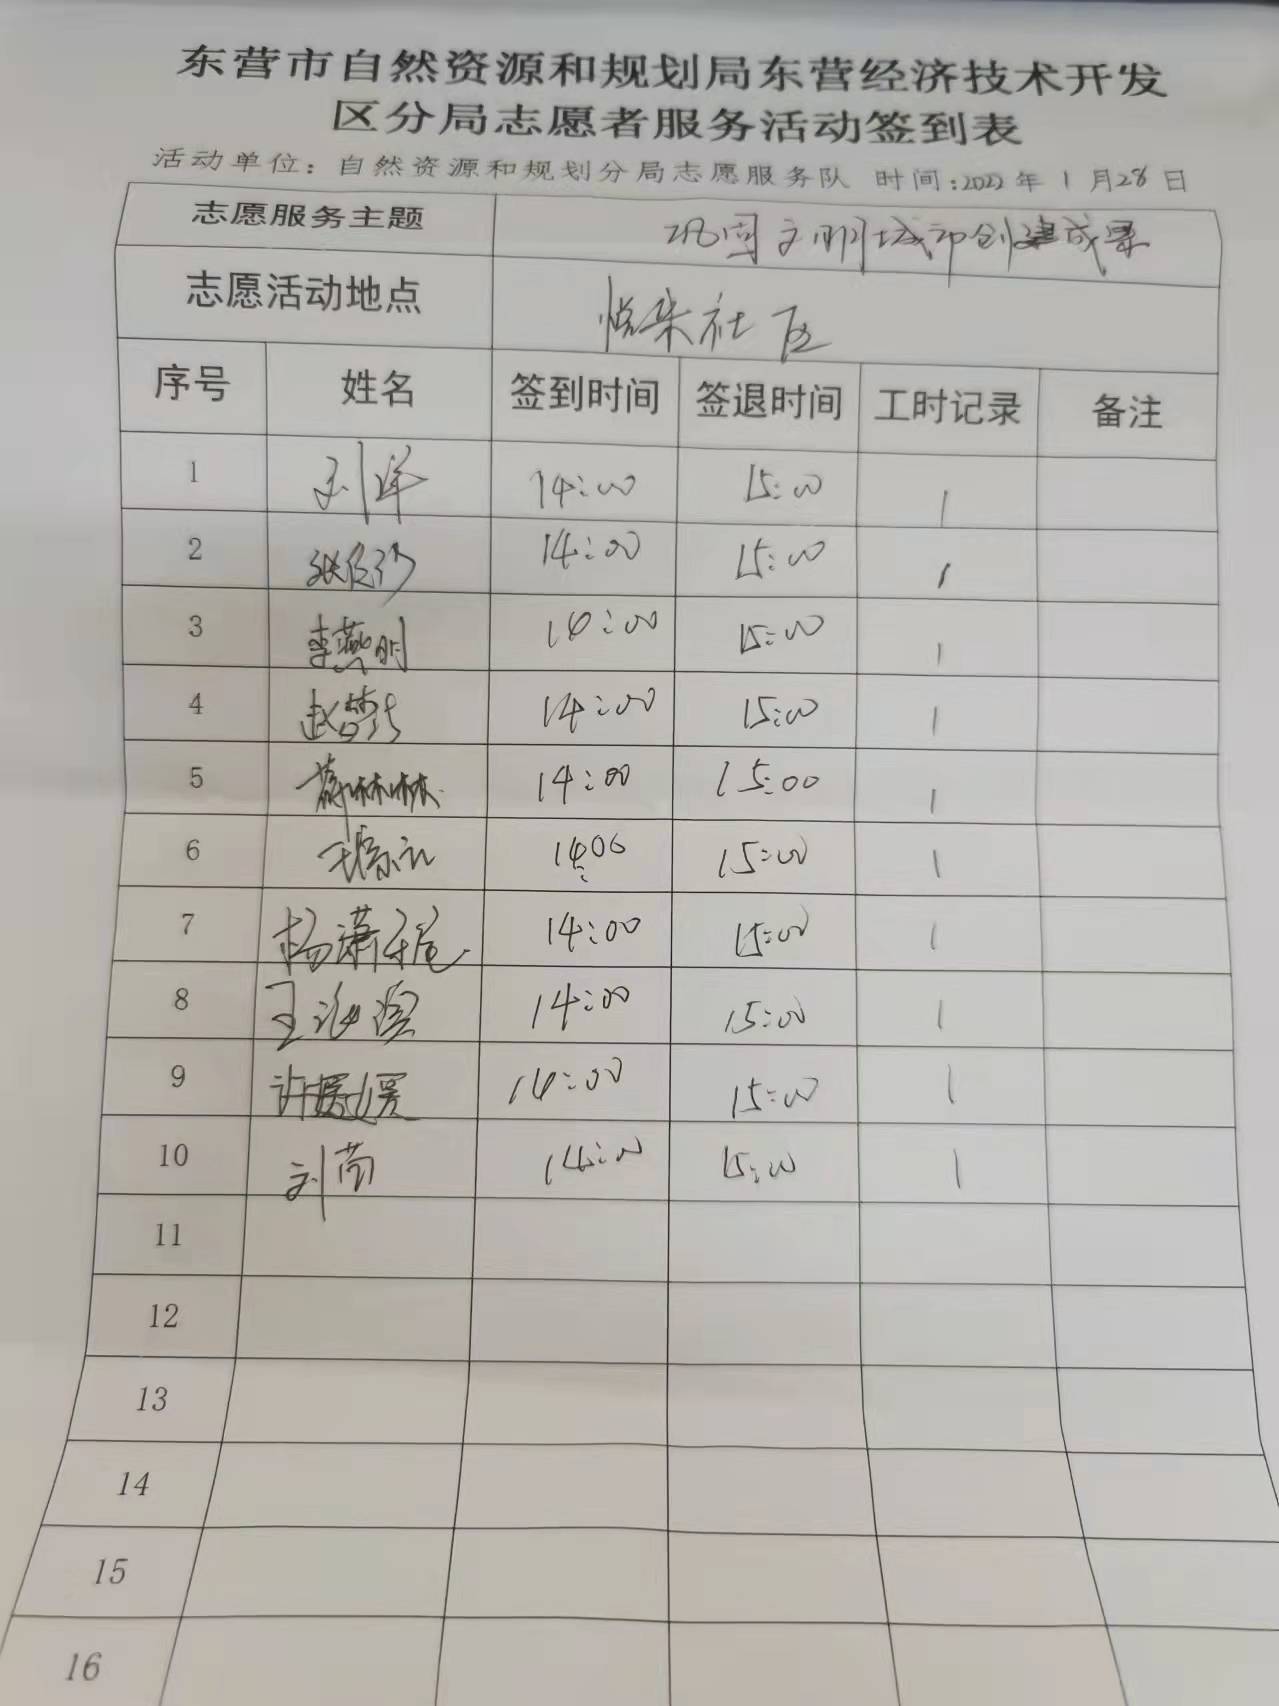 东营市自然资源和规划局东营经济技术开发
区分局志愿者服务活动签到表
活动单位：自然资源和规划分局志愿服务队 时间:2022年1月28日
志愿服务主题 巩固文明城市创建成果
志愿活动地点 悦来社区
序号 姓名 签到时间 签退时间 工时记录 备注
1 刘洋 14:00 15:00 1
2 14:00 15:00 1
3 李燕明 14:00 15:00 1
4 14:00 15:00 1
5 14:00 15:00 1
6 14:00 15:00 1
7 14:00 15:00 1
8 14:00 15:00 1
9 许媛媛 14:00 15:00 1
10 14:00 15:00 1
11
12
13
14
15
16